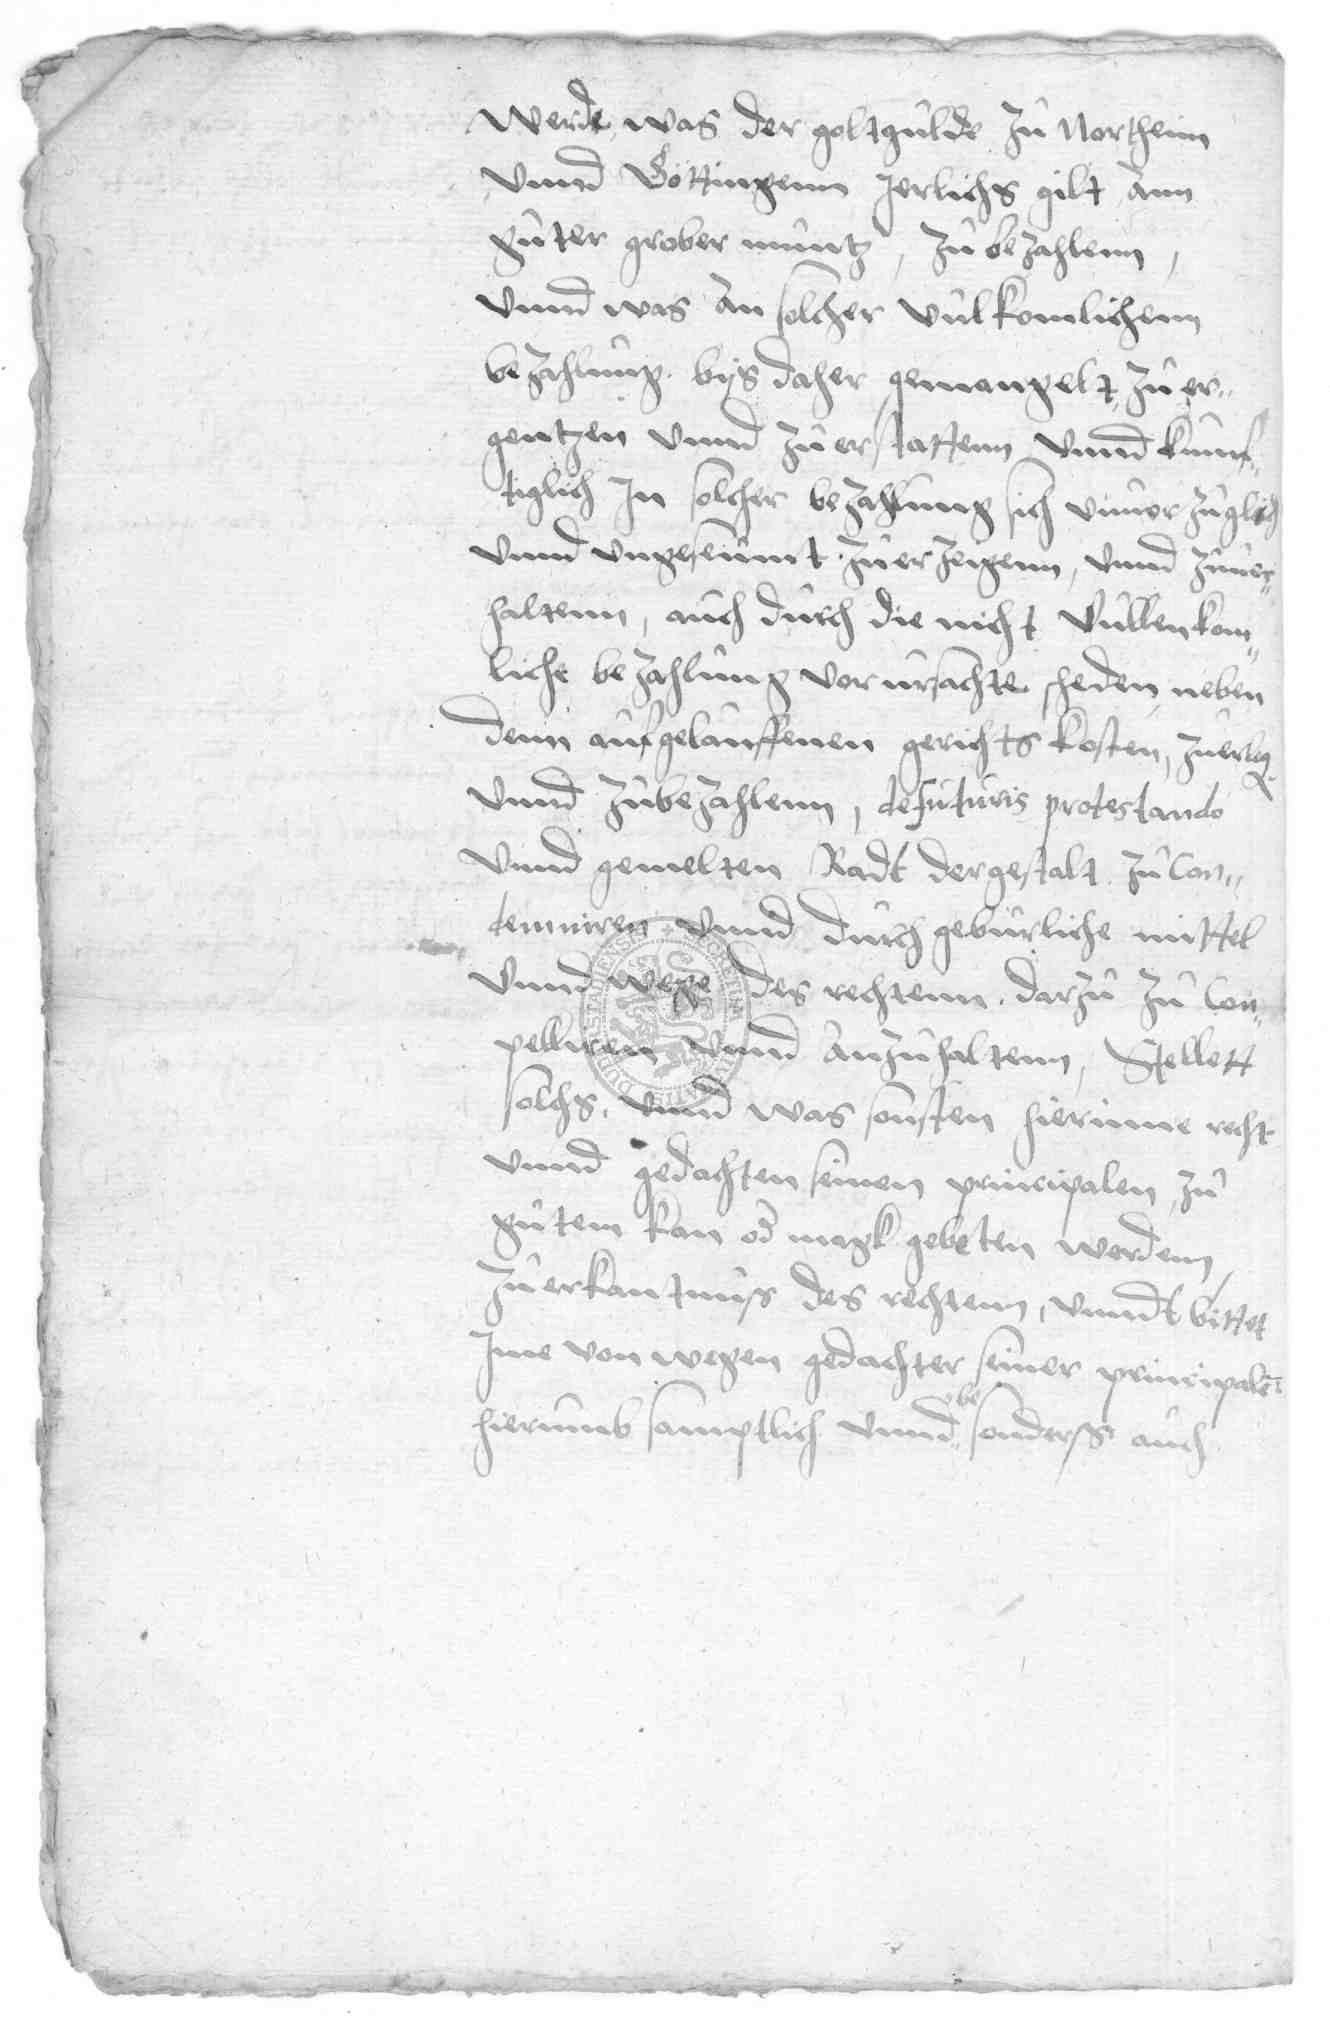 Werde, was der goltgulde zu Northeim
vnnd Göttingenn Jerlichs gilt ann
guter grober müntz, zubezahlenn,
vnnd was an solcher vulkomlichenn
bezahlung bijs daher gemangelt, zu er-
gentzen vnnd zuerstattenn vnnd künf-
tiglich In solcher bezahlung sich vnuerzuglich
vnnd vngeseumt zuerzeigenn, vnnd zuuer-
haltenn, auch durch die nicht vullenkom-
liche bezahlung vorursachte scheden, neben
denn aufgelauffenen gerichts kosten, zuerleg
vnnd zubezahlenn, de futuris protestando
vnnd gemelten Radt dergestalt zu Con-
demniren vnnd durch geburliche mittel
vnnd wege des rechtenn darzu zu Com-
pelliren vnnd anzuhaltenn, Stellett
solchs, vnnd was sonsten hierinne recht
vnnd gedachten seinen principalen zu
gutem kan od magk gebeten werdenn,
zuerkantnuss des rechtenn, vnndt bittet
Ime von wegen gedachter seiner principaln
hierumb samptlich vnnd besonderss auch